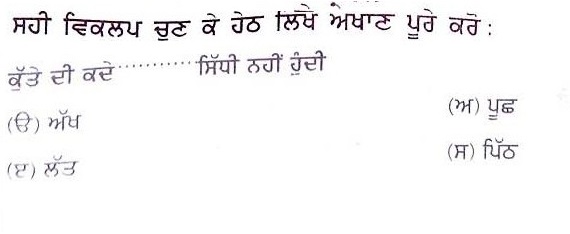 ਸਹੀ ਵਿਕਲਪ ਚੁਣ ਕੇ ਹੇਠ ਲਿਖੇ ਅਖਾਣ ਪੂਰੇ ਕਰੋ :
ਕੁੱਤੇ ਦੀ ਕਦੇ ........... ਸਿੱਧੀ ਨਹੀਂ ਹੁੰਦੀ
(ੳ) ਅੱਖ (ਅ) ਪੂਛ
(ੲ) ਲੱਤ (ਸ) ਪਿੱਠ